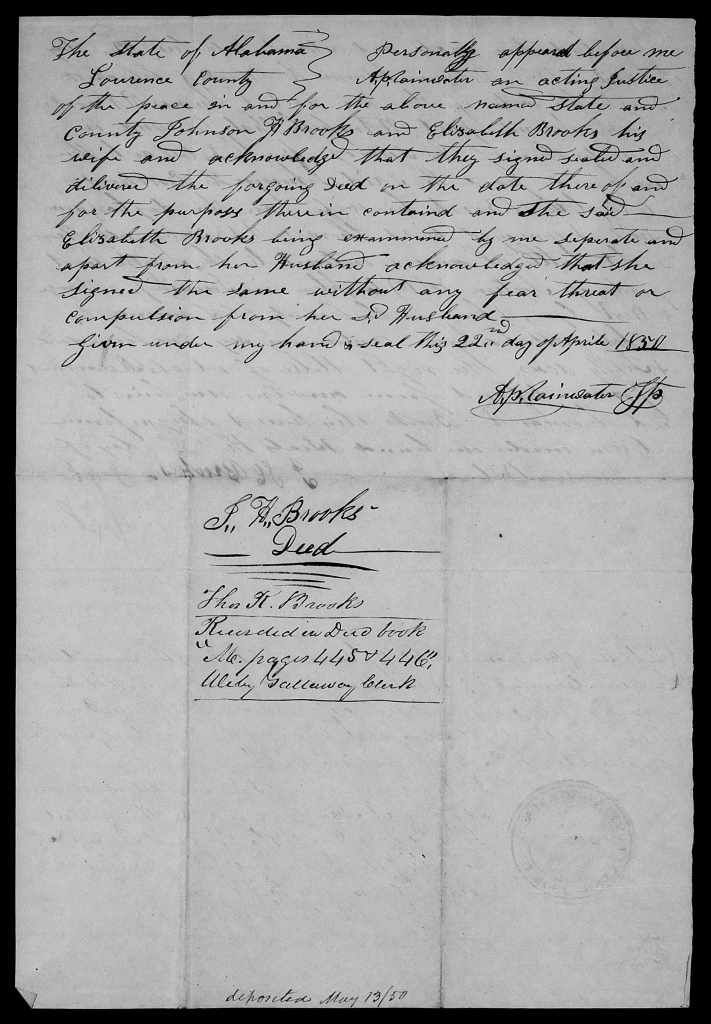 The State of Alabama } Personally appeard before me
Lourence County } A.P. Rainwater an acting Justice
of the peace in and for the above named State and
County Johnson H Brooks and Elizabeth Brooks his
wife and acknowledged that they signed sealed and
dilivered the forgoing Deed on the date thereof and
for the purposes therein containd and she said
Elizabeth Brooks being exammoned by me seperate and
apart from her Husband acknowledged that she
signed the same without any fear threat or
compulsion from her Sd Husband
Given under my hand & seal this 22nd day of Aprile 1850
A.P. Rainwater JP
J. H. Brooks
Deed
Thos H. Brooks
Recorded in Deed book
"M. pages 445 & 446",
Gallaway Clerk
deposited May 13/50